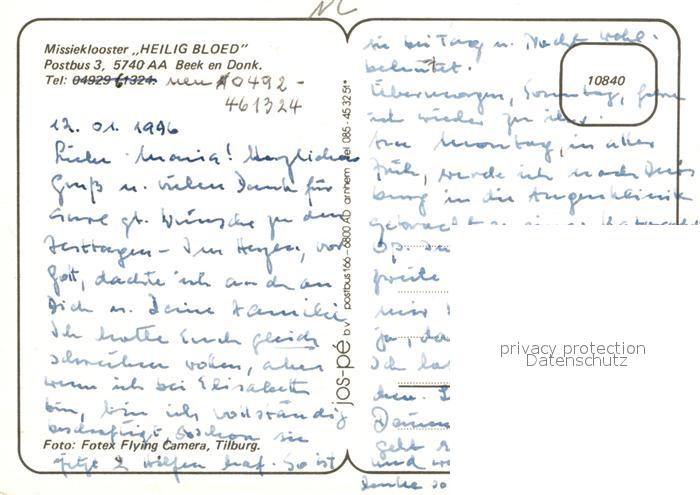 Missieklooster „HEILIG BLOED”
Postbus 3, 5740 AA Beek en Donk.
Tel: 04929 61324. neu 0492 -
461324
12. 01. 1996
Liebe Maria! Herzlichen
Gruß u. vielen Dank für
Eure gt. Wünsche zu den
Festtagen - Im Herzen, vor
Gott, dachte ich auch an
Dich u. Deine Familie
Ich hatte Euch gleich
schreiben wollen, aber
wenn ich bei Elisabeth
bin, bin ich vollständig
beschäftigt, obschon sie
jetzt 2 Hilfen hat. So ist
Foto: Fotex Flying Camera, Tilburg.
jos-pé b.v. postbus 166 – 6800 AD arnhem tel 085 - 45 32 51*
sie bei Tag u. Nacht wohl-
behütet.
Übermorgen, Sonntag,
ich wieder zu ihr.
Montag, in aller
Früh, werde ich nach Duis
burg in die Augenklinik
gebracht zu einer
Op.
zweite
mir
ja, da
Ich
Daumen
geht
und
danke so
10840
privacy protection
Datenschutz